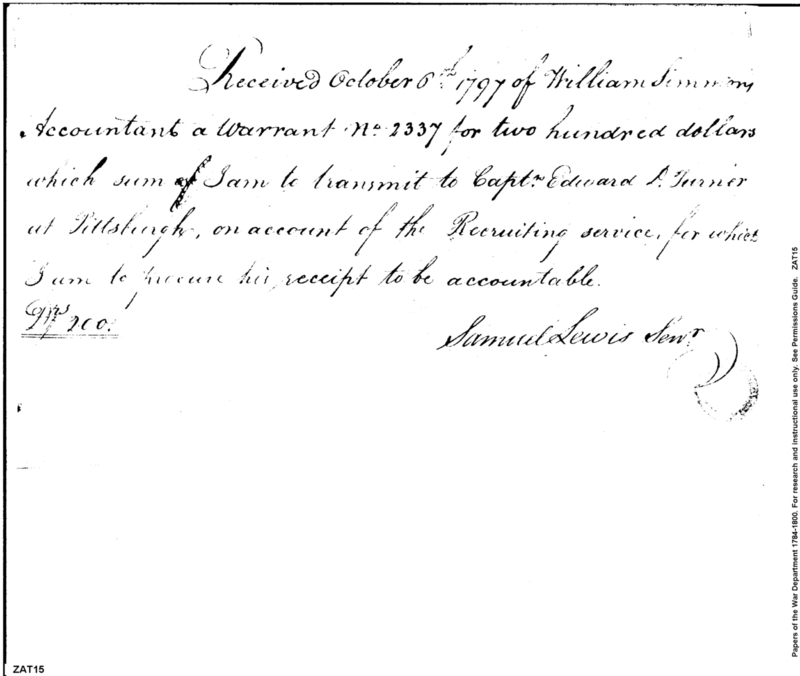 Received October 6th 1797 of William Simmons
Accountant a Warrant No. 2337 for two hundred dollars
which sum of I am to transmit to Captn. Edward D. Turner
at Pittsburgh, on account of the Recruiting service, for which
I am to procure his receipt to be accountable.
Drs 200.
Samuel Lewis Senr
ZAT15
Papers of the War Department 1784-1800. For research and instructional use only. See Permissions Guide. ZAT15